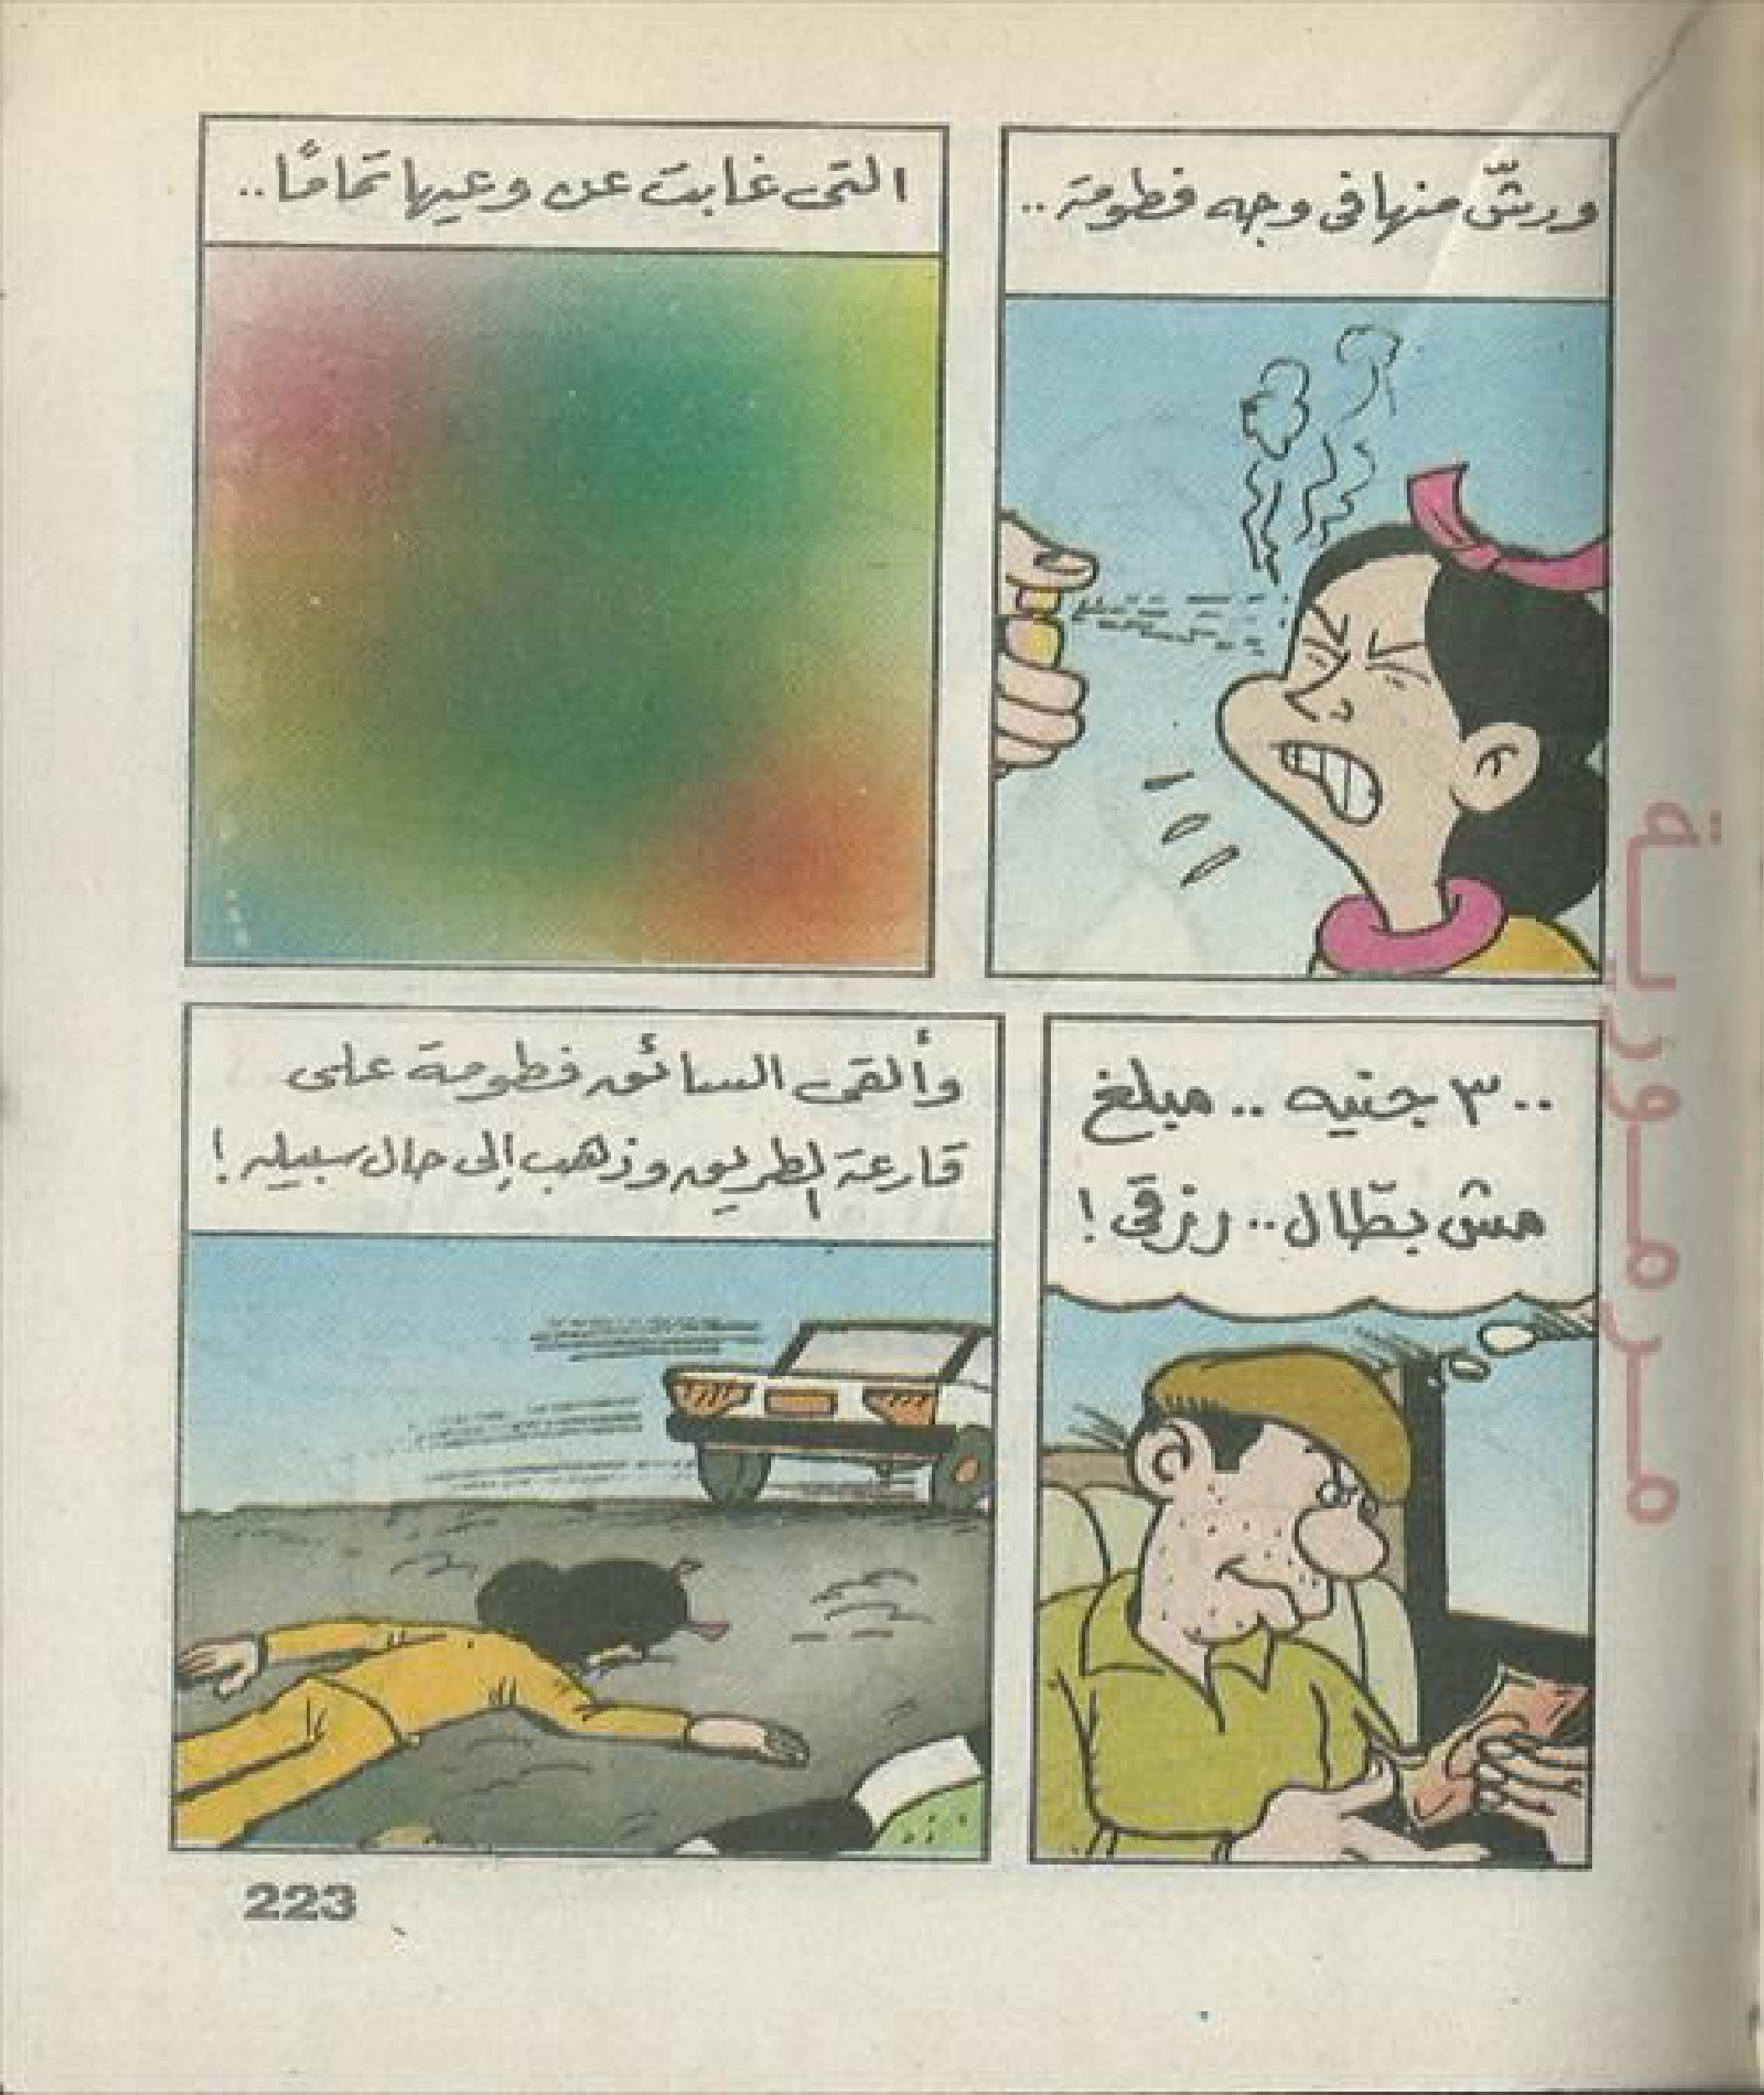 ورشّ منها فى وجه فطومة..
التى غابت عن وعيها تمامًا..
٣٠٠ جنيه .. مبلغ
مش بطّال.. رزقى!
وألقى السائق فطومة على
قارعة الطريق وذهب إلى حال سبيله!
223
مرمورية